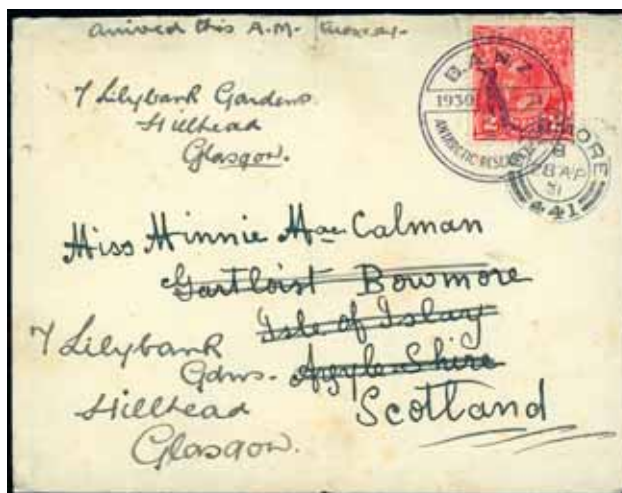 arrived this A.M. Tuesday.
7 Lilybank Gardens
Hillhead
Glasgow.
B.A.N.Z.
1930
31
ANTARCTIC RESEA
BOWMORE
B
28 AP
31
441
Miss Minnie Mac Calman
Gartloist Bowmore
Isle of Islay
Argyle Shire
Scotland
7 Lilybank
Gdns.
Hillhead
Glasgow.